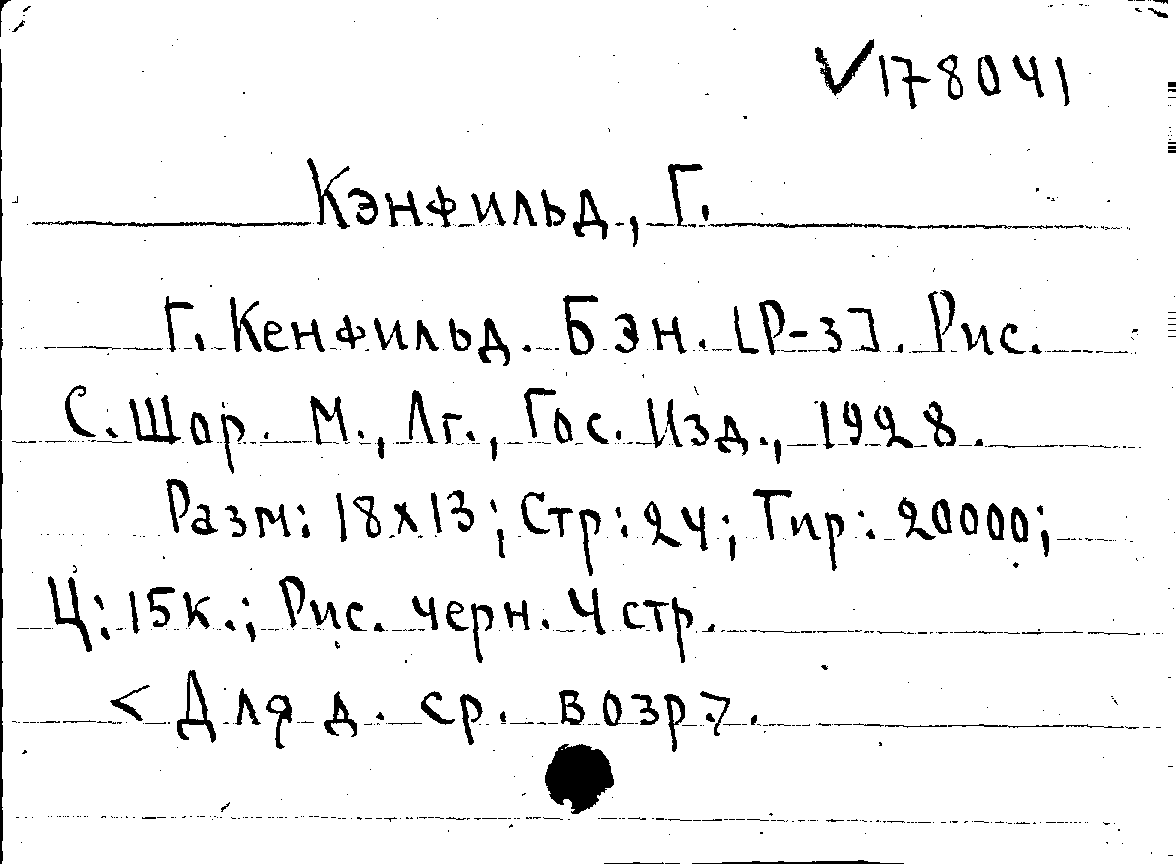 V178041
Кэнфильд, Г.
Г. Кенфильд. Бэн. [Р-з]. Рис.
С. Шор. М., Лг., Гос. Изд., 1928.
Разм: 18х13; Стр: 24; Тир: 20000;
Ц: 15к.; Рис. черн. 4 стр.
<Для д. ср. возр.>.